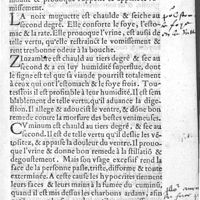 missement.
LA noix muguette est chaulde & seiche au
second degré. Elle conforte le foye, l'esto-
mac, & la rate. Elle prouoque l'vrine, & est aussi de
telle vertu, qu'elle restrainct le vomissement &
rent tresbonne odeur à la bouche.
Zizannie est chaulde au tiers degré & seche au
second & a en luy humidité superflue, dont
le signe est tel que sa viande pourrist totalement
à ceux qui ont l'estomach & le foye trop froids.
si est prouffitable à ceux qui ont humidité. Il est
semblablement de telle vertu, qu'il aduance la di-
gestion. Il allege & adoulcist le ventre, & done bon
remede contre la morsure des bestes venimeuses.
CVminum est chauld au tiers degré, & sec au
second. Il est de telle vertu qu'il deslie les vẽ-
tositez, & appaise la douleur du ventre. Il prouo-
que l'vrine & donne bon remede à la stillatiõ &
degoustement. Mais son vsage excessif rend la
face de la personne palle, triste, difforme & toute
exterminée. Parquoy les hypocrites pouuoient
leurs faces & leurs mains à la fumée du cuminũ,
quand il est mis dessus les charbons ardans, afin